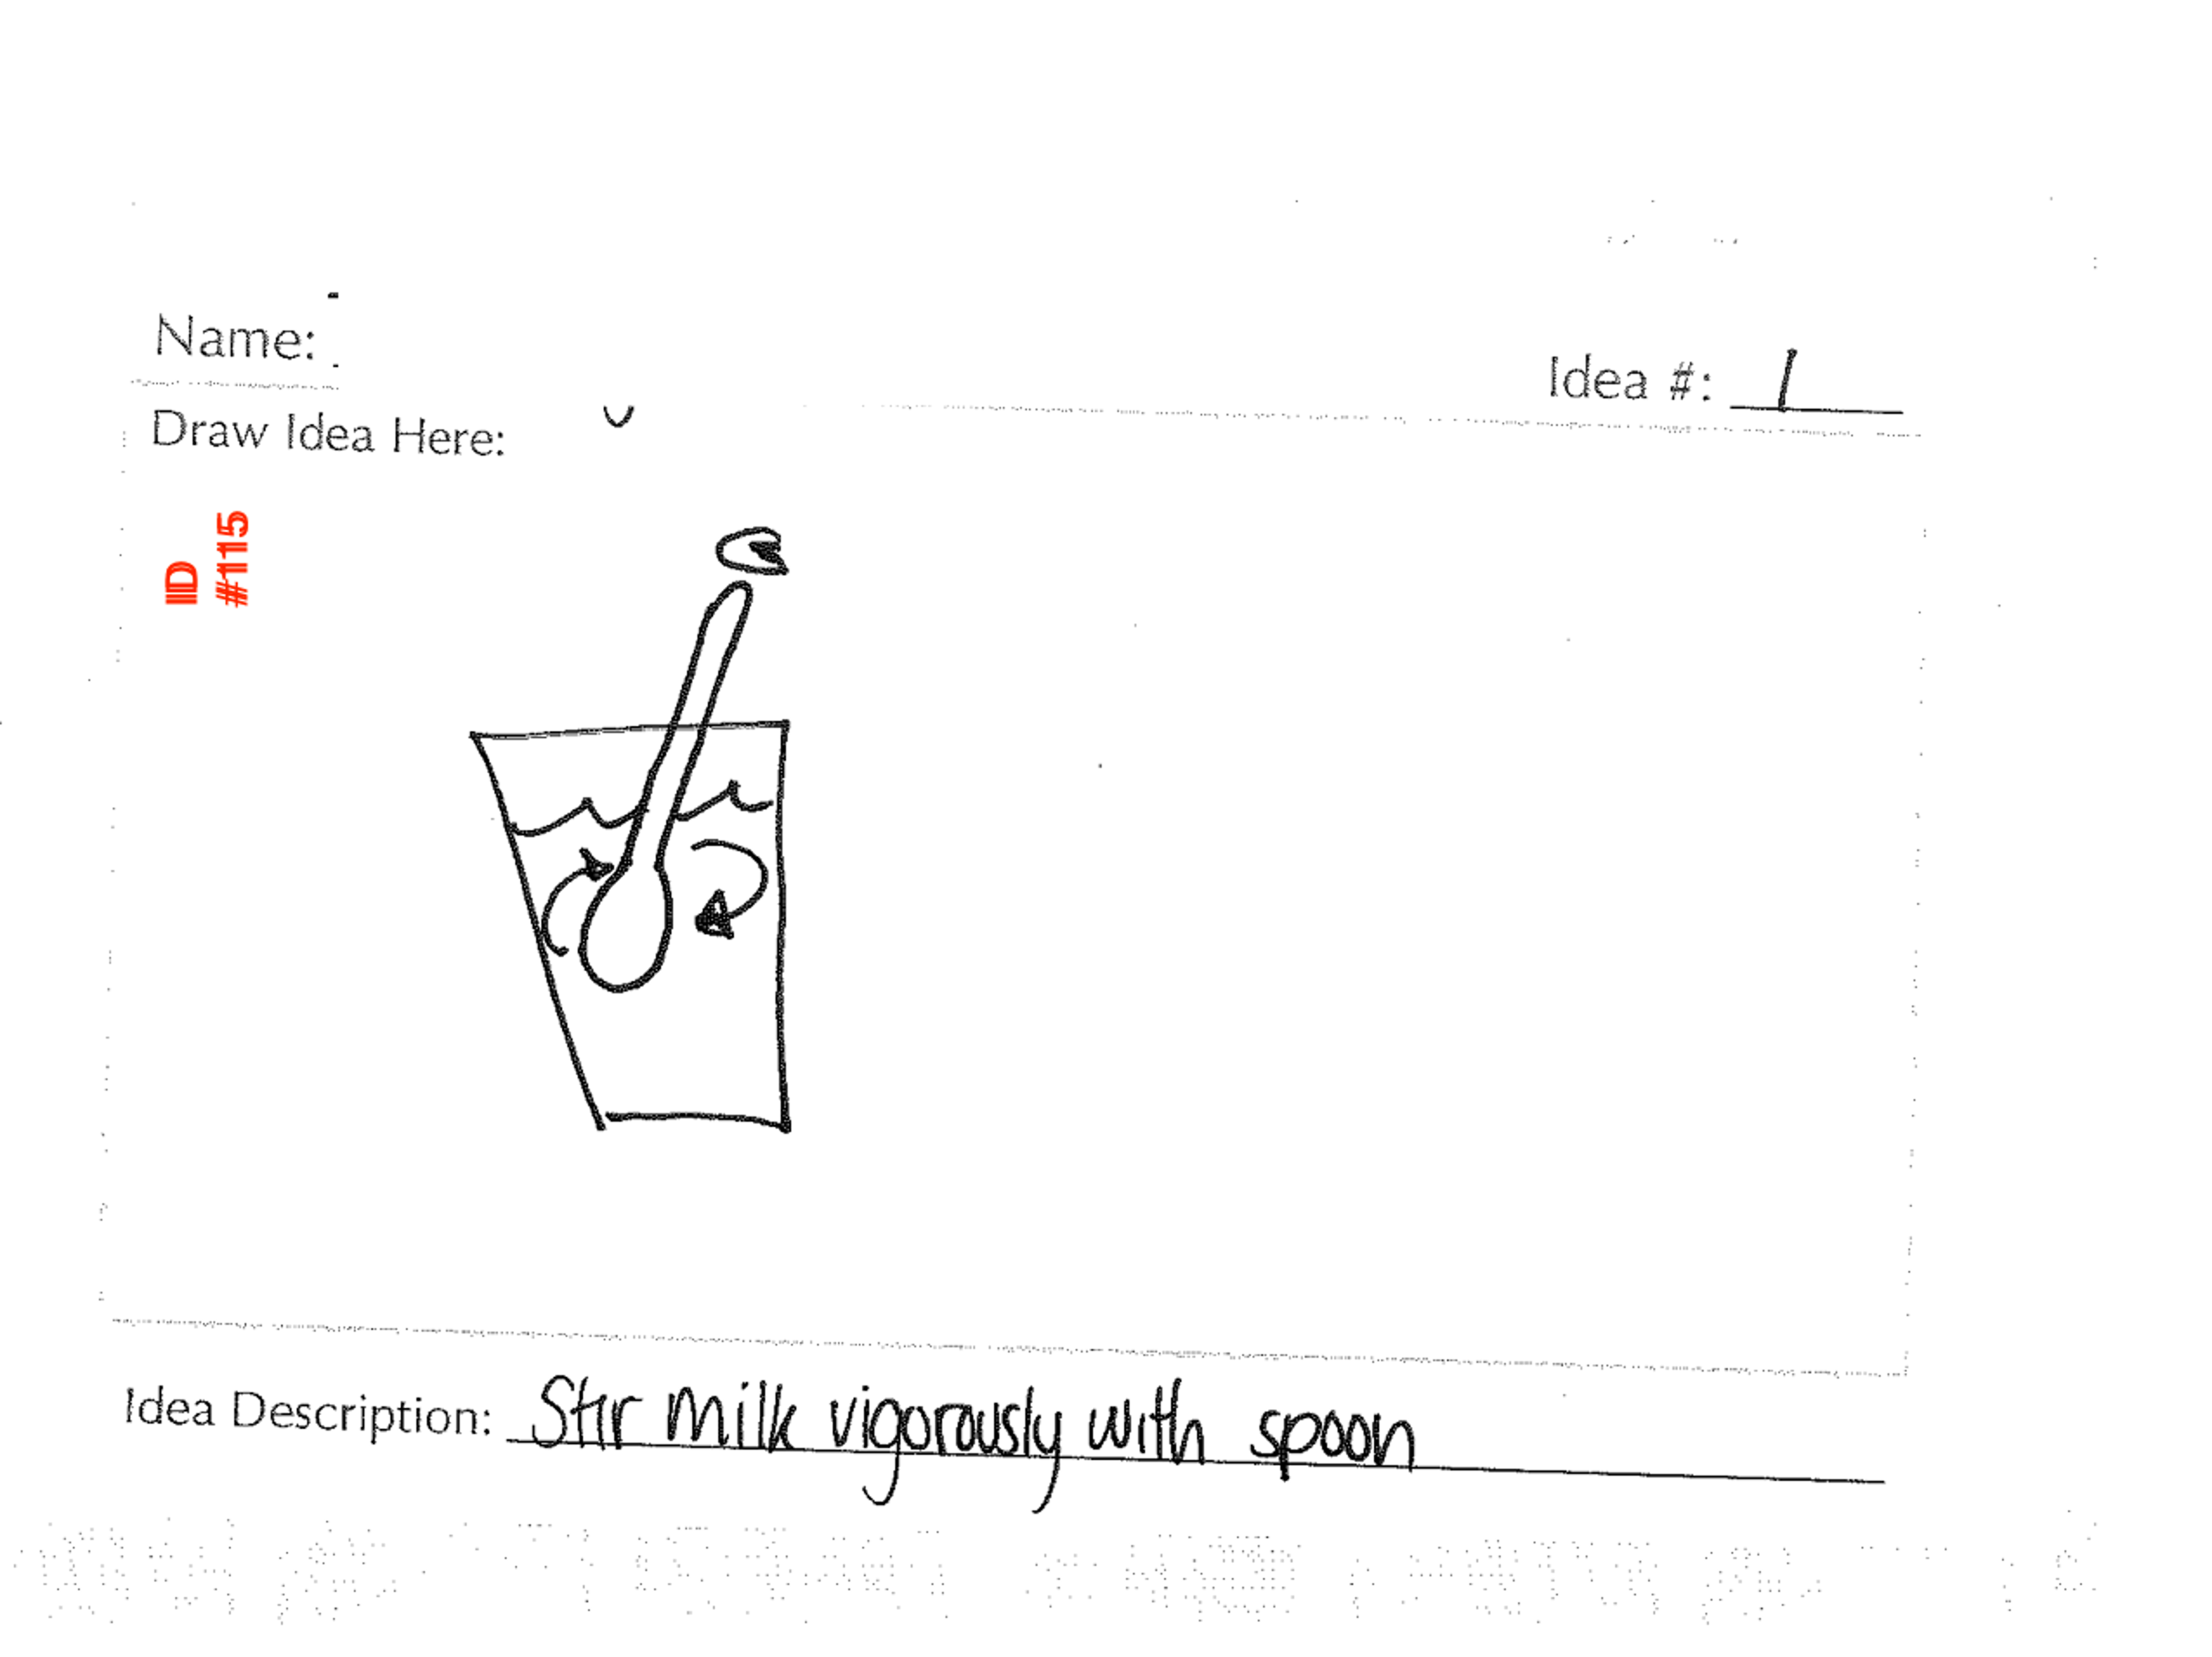 Name:
Idea #: 1
Draw Idea Here:
ID
#115
Idea Description: Stir milk vigorously with spoon